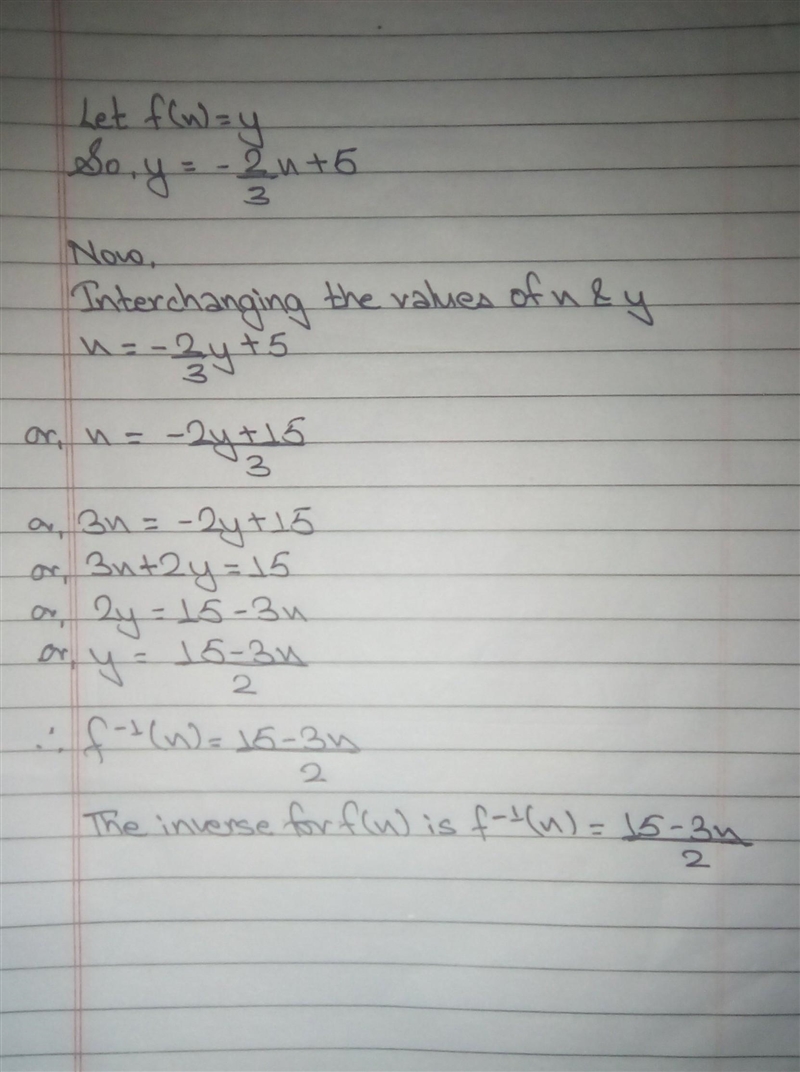 Let f(n)=y
So, y = -2/3 n + 5
Now,
Interchanging the values of n & y
n = -2/3 y + 5
or, n = (-2y+15)/3
or, 3n = -2y+15
or, 3n+2y = 15
or, 2y = 15-3n
or, y = (15-3n)/2
∴ f⁻¹(n) = (15-3n)/2
The inverse for f(n) is f⁻¹(n) = (15-3n)/2